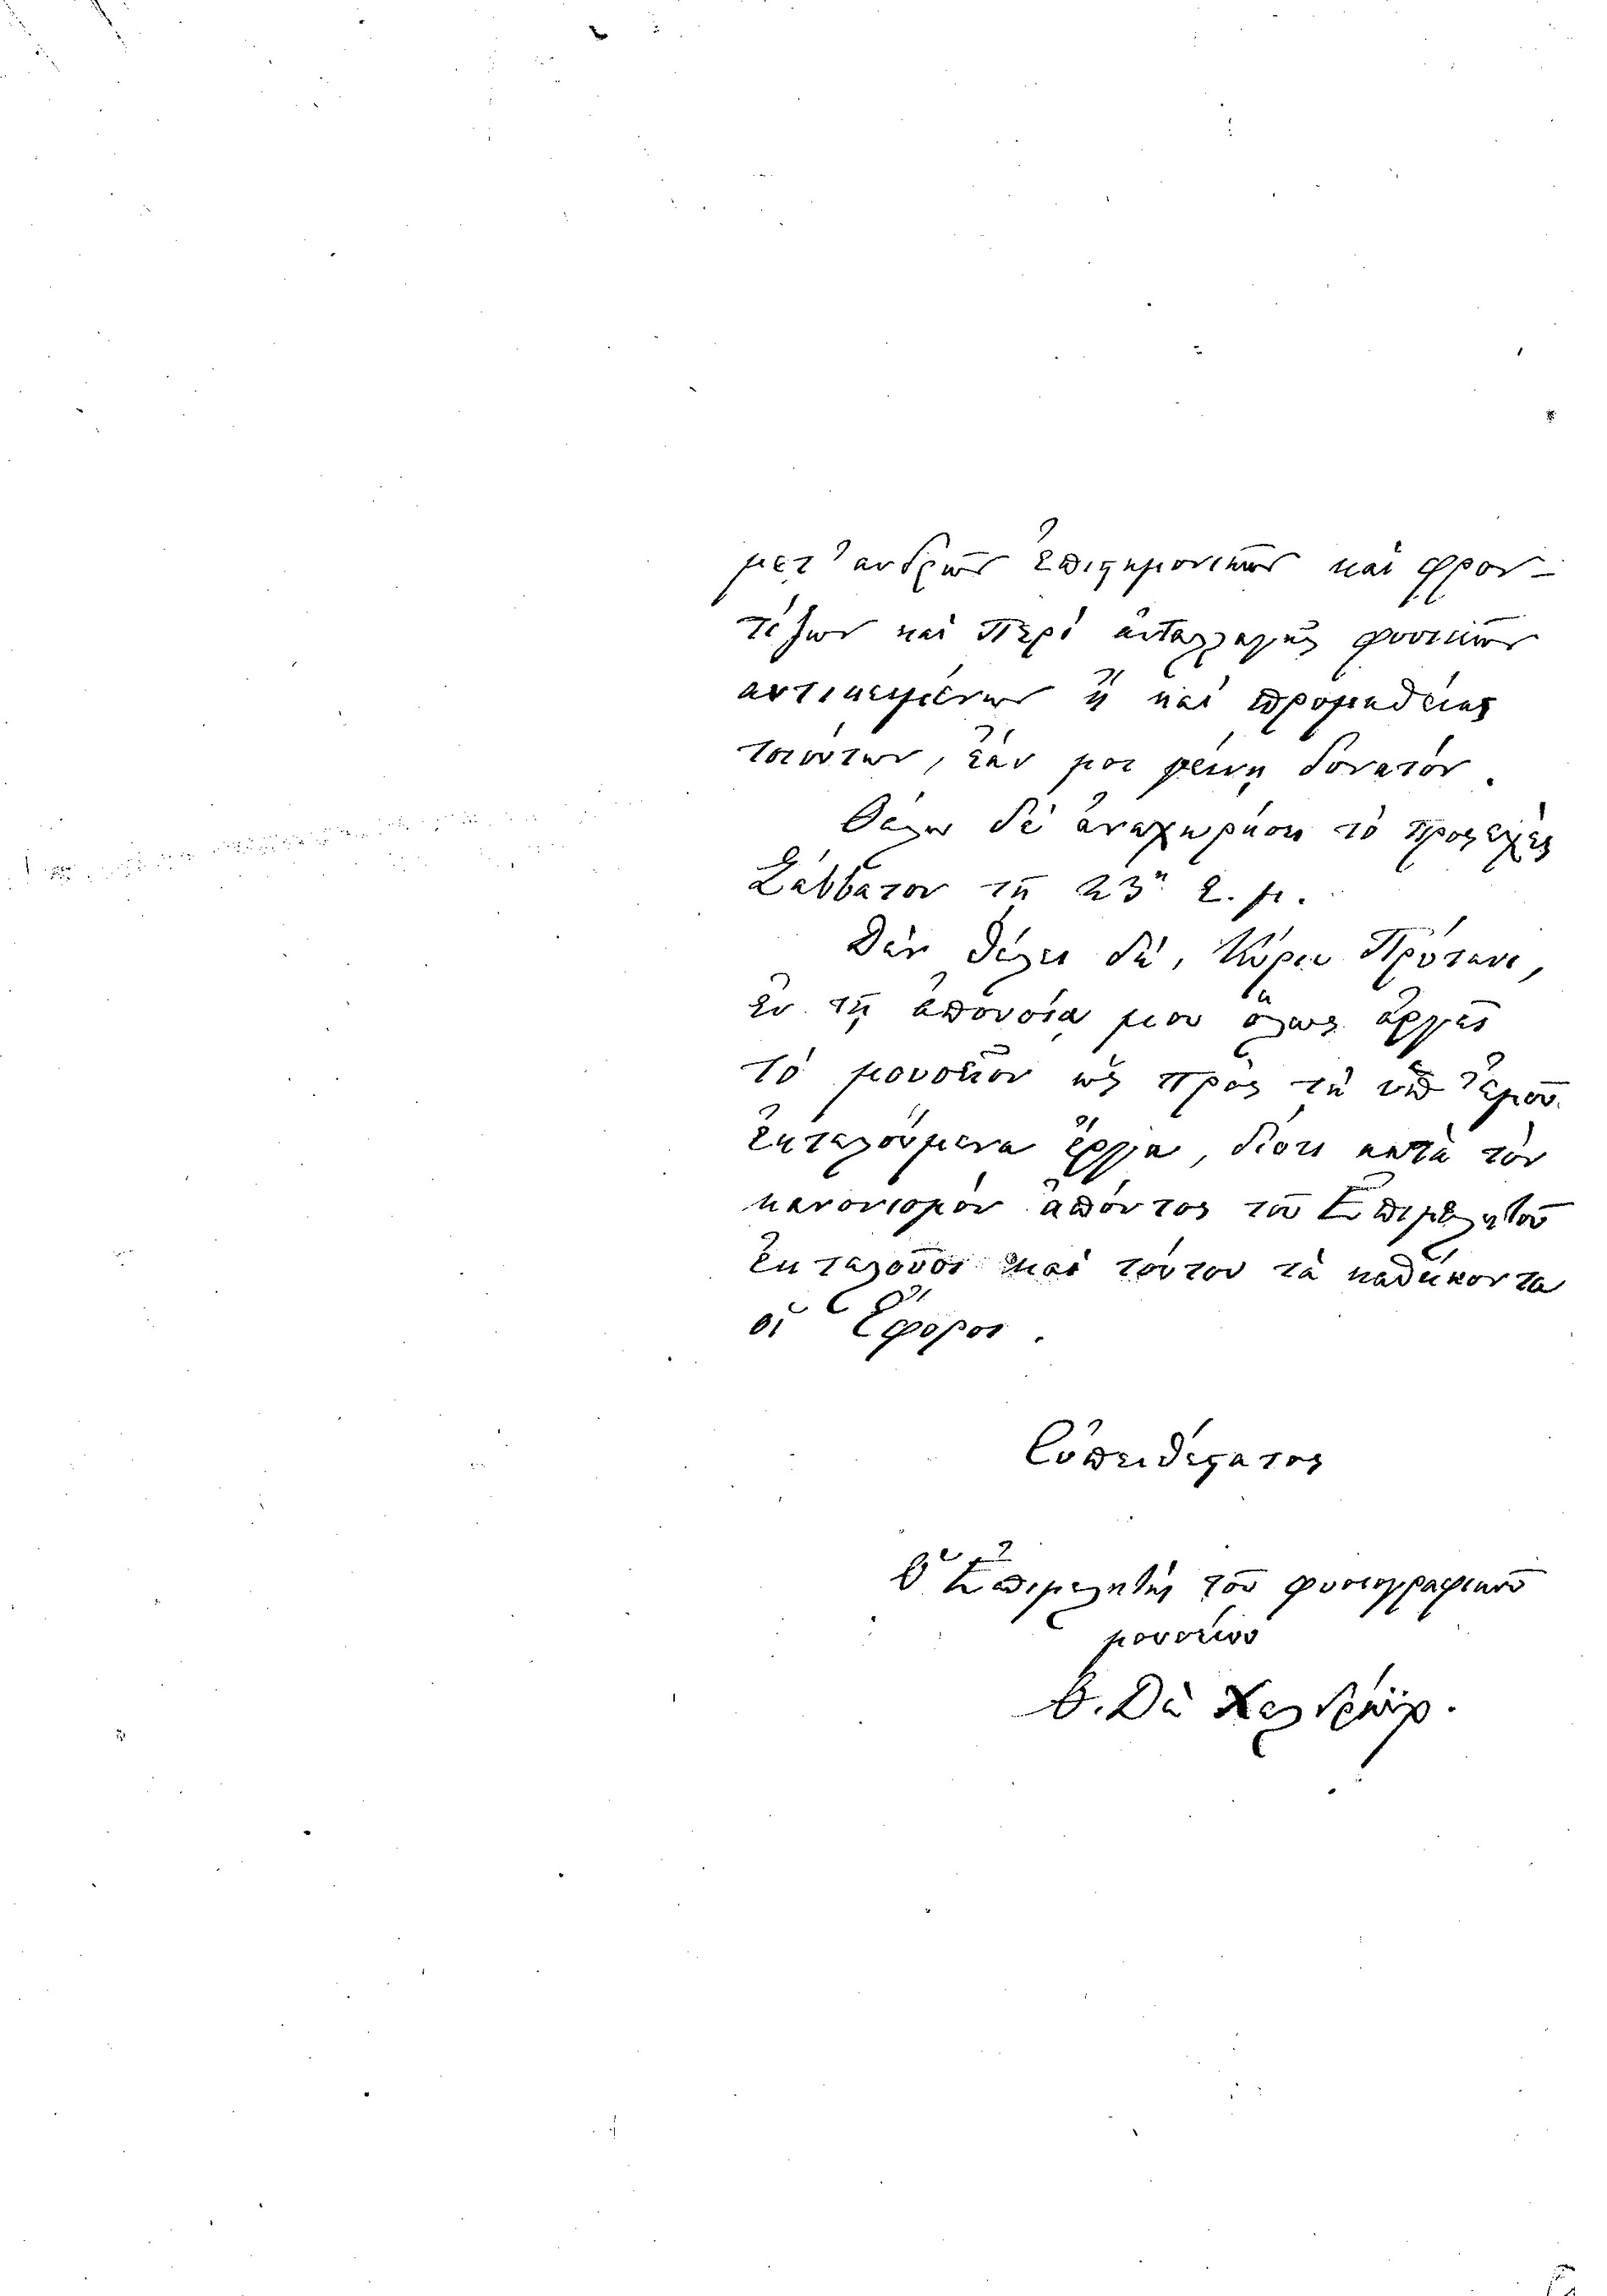 μετ' ανδρῶν ἐπιστημονικῶν καὶ φρον-
τίζων καὶ περὶ ἀνταλλαγῆς φυσικῶν
αντικειμένων ἢ καὶ προμηθείας
τοιούτων, ἐάν μοι μείνῃ δυνατόν.
Θέλω δὲ ἀναχωρήσει τὸ προσεχὲς
Σάββατον τῇ 23ῃ ἐ. μ.
Δὲν θέλει δὲ, Κύριε Πρύτανι,
ἐν τῇ ἀπουσίᾳ μου ὅλως ἀργεῖ
τὸ μουσεῖον ὡς πρὸς τὰ ὑπ' ἐμοῦ
ἐκτελούμενα ἔργα, διότι κατὰ τὸν
κανονισμὸν ἀπόντος τοῦ Ἐπιμελητοῦ
ἐκτελοῦσι καὶ τούτου τὰ καθήκοντα
οἱ Ἔφοροι.
Εὐπειθέστατος
Ὁ Ἐπιμελητὴς τοῦ φυσιογραφικοῦ
μουσείου
Θ. Δὲ Χελδράϊχ.